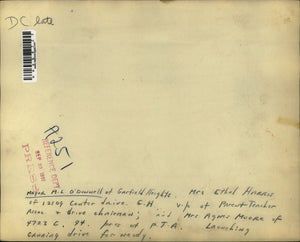 DC late
A251
REFERENCE DEPT
SEP 23 1951
PRESS
Mayor A.C. O'Donnell of Garfield Heights. Mrs Ethel Harris
of 12509 Center drive. G.H. v.p. of Parent-Teacher
Assn & drive chairman; and Mrs Agnes Moore of
4722 E. 94. pres of P.T.A. Launching
canning drive for needy.